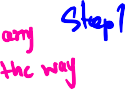 Step 1
any
the way